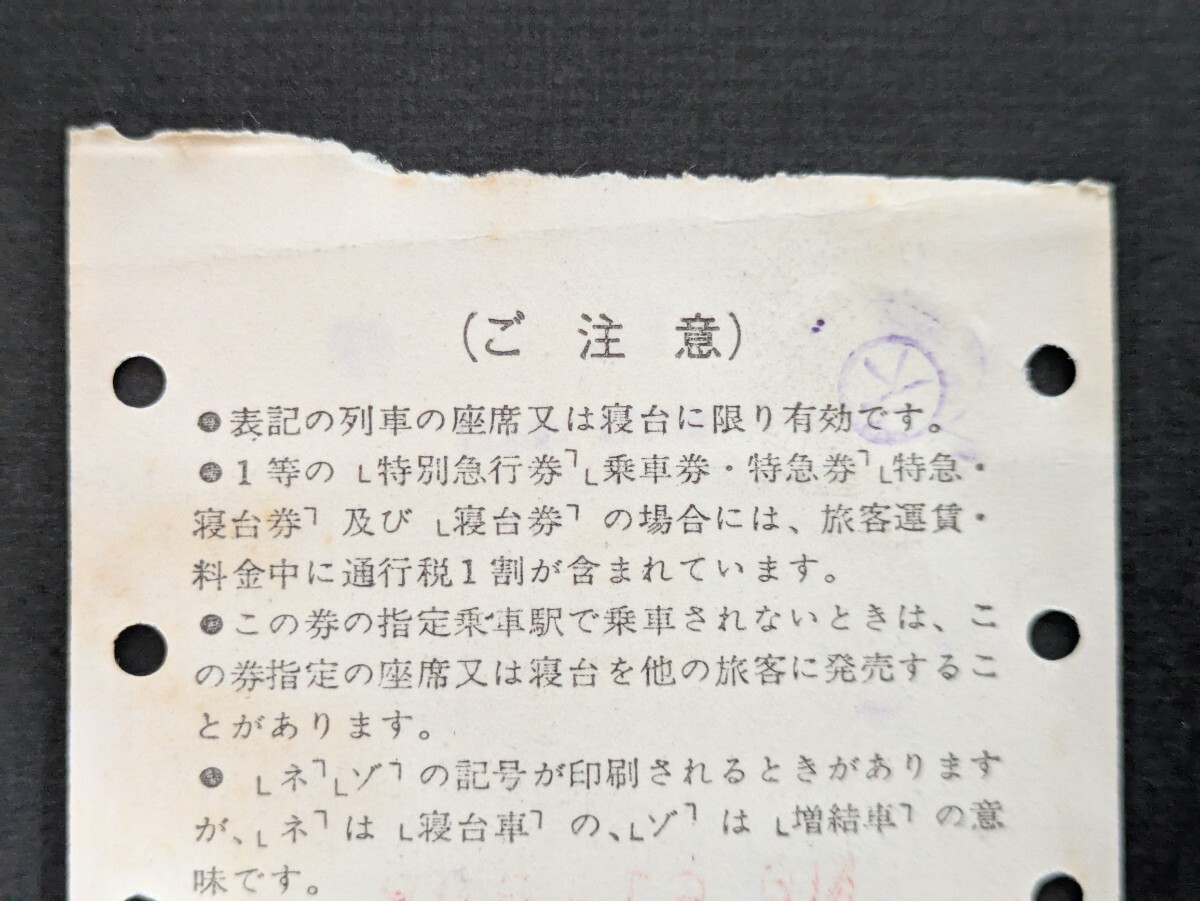 (ご注意)
●表記の列車の座席又は寝台に限り有効です。
●1等の「特別急行券」「乗車券・特急券」「特急・
寝台券」及び「寝台券」の場合には、旅客運賃・
料金中に通行税1割が含まれています。
●この券の指定乗車駅で乗車されないときは、こ
の券指定の座席又は寝台を他の旅客に発売するこ
とがあります。
●「ネ」「ゾ」の記号が印刷されるときがあります
が、「ネ」は「寝台車」の、「ゾ」は「増結車」の意
味です。